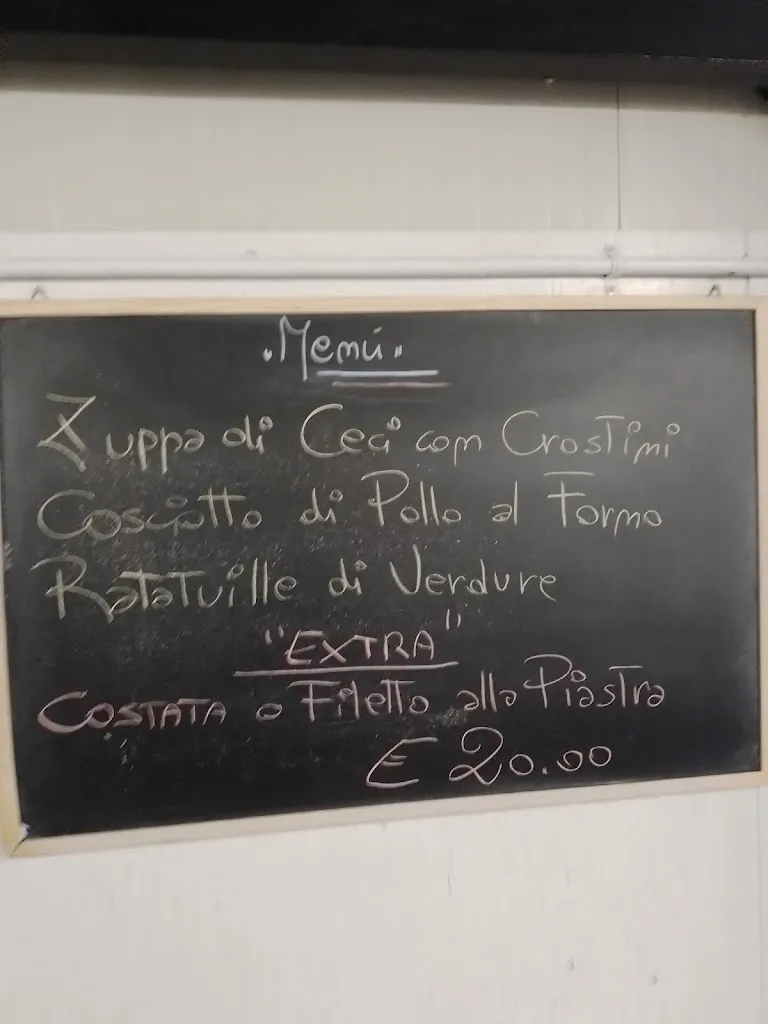 "Menú"
Zuppa di Ceci con Crostini
Cosciotto di Pollo al Forno
Ratatuille di Verdure
"EXTRA"
COSTATA o Filetto alla Piastra
€ 20.00